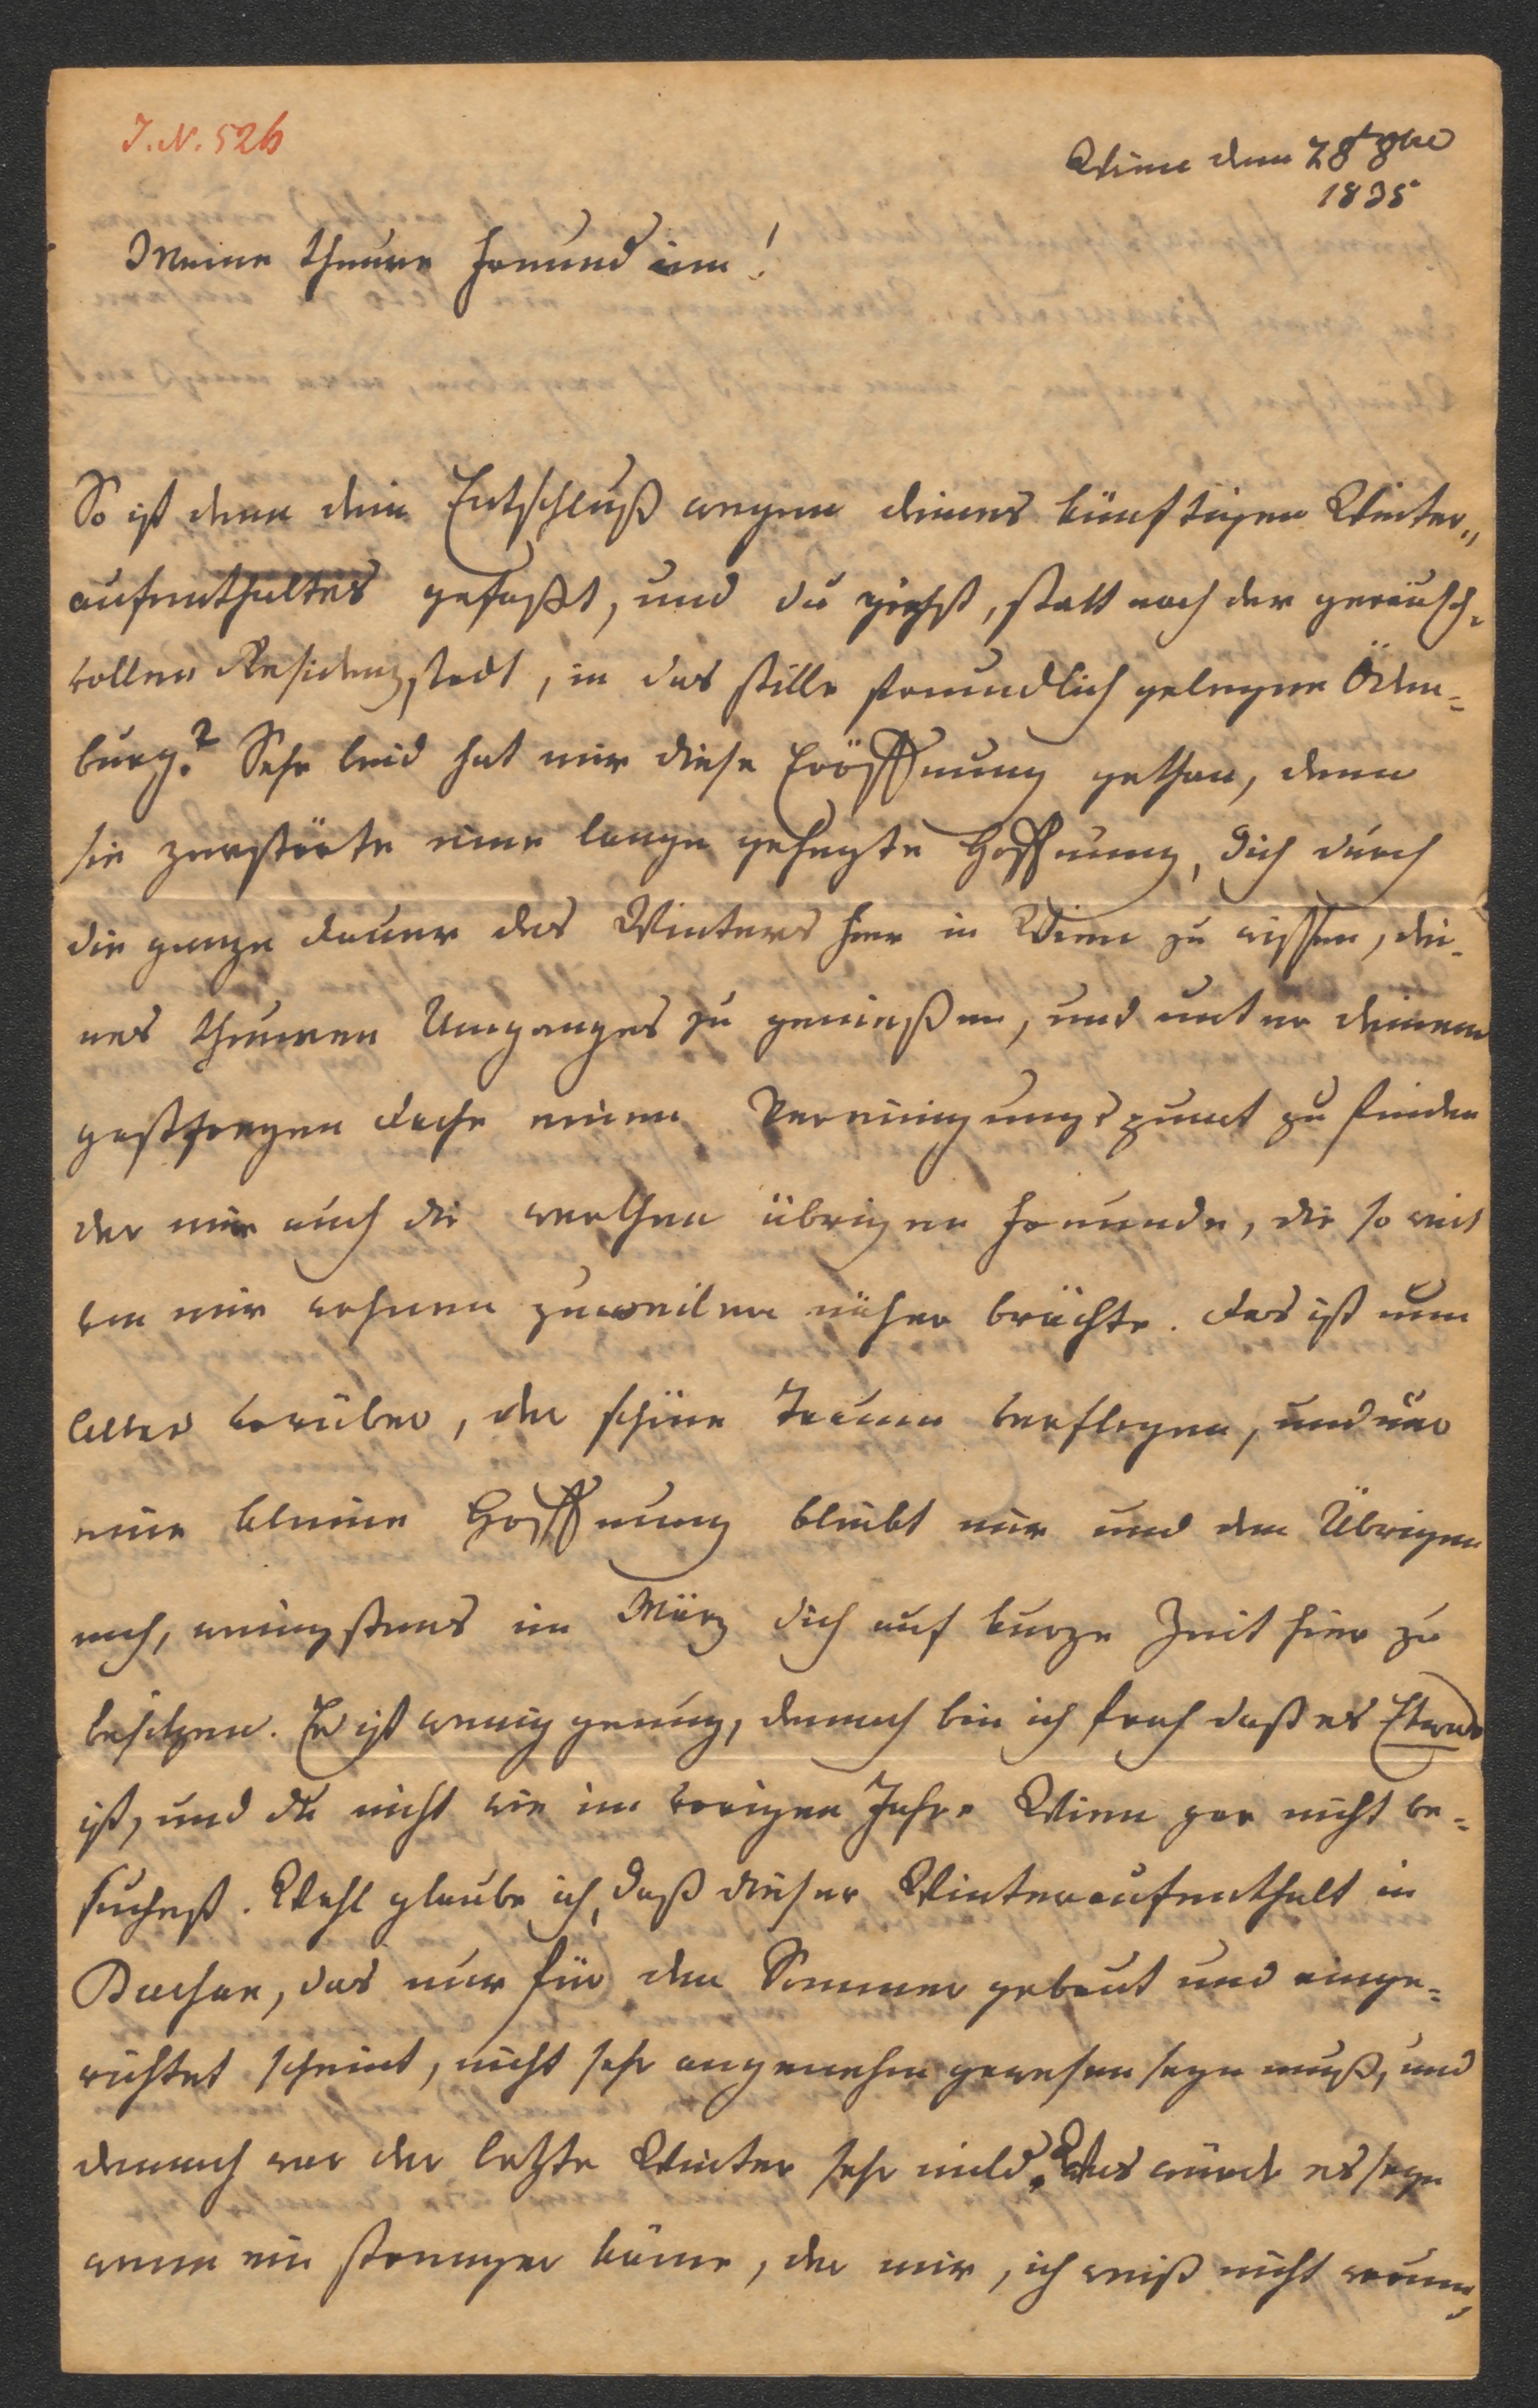 I.N. 526
Wien den 28t 8ber
1835
Meine theure Freundinn!
So ist denn dein Entschluß wegen deines künftigen Winter„
aufenthaltes gefaßt, und du ziehst, statt nach der geräusch-
vollen Residenzstadt, in das stille freundlich gelegene Öden-
burg? Sehr leid hat mir diese Eröffnung gethan, denn
sie zerstörte eine lange gehegte Hoffnung, dich durch
die ganze Dauer des Winters hier in Wien zu wissen, dei-
nes theuren Umganges zu genießen, und unter deinem
gastfreyen Dache einen Vereinigungspunct zu finden
der mir auch die werthen übrigen Freunde, die so weit
von mir wohnen zuweilen näher brächte. Das ist nun
alles vorüber, der schöne Traum verflogen, und nur
eine kleine Hoffnung bleibt mir und den Übrigen
noch, wenigstens im März dich auf kurze Zeit hier zu
besitzen. Es ist wenig genug, dennoch bin ich froh daß es Etwas
ist, und du nicht wie im vorigen Jahre Wien gar nicht be-
suchest. Wohl glaube ich, daß dieser Winteraufenthalt in
das nur für den Sommer gebaut und einge-
richtet scheint, nicht sehr angenehm gewesen seyn muß, und
dennoch war der letzte Winter sehr mild. Was würde es seyn
wenn ein strenger käme, der mir, ich weiß nicht warum,